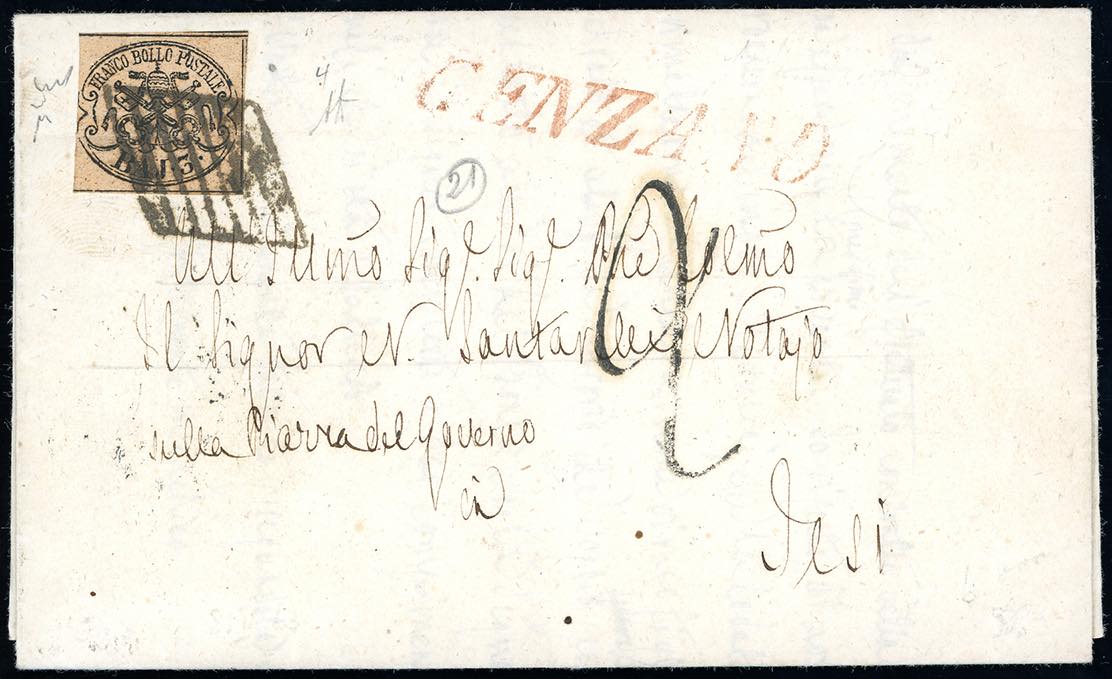 FRANCO BOLLO POSTALE
BAJ 3.
GENZANO
4
21
2
All Illmo Sigr. Sigr. Pne Colmo
Il Signor N. Santarelli Notajo
sulla Piazza del Governo
in
Jesi